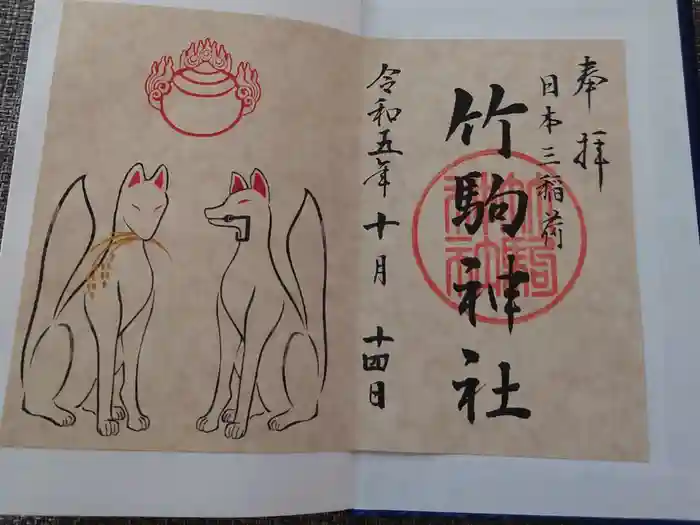 奉拝
日本三稲荷
竹駒神社
令和五年十月十四日
竹駒神社